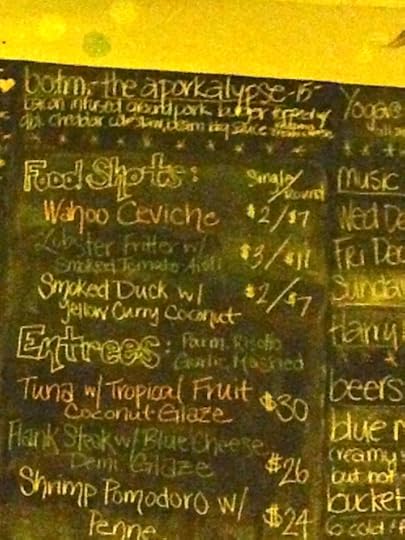 botm-the aporkalypse-15-
bacon infused ground pork burger topped w/
cheddar coleslaw, bbq sauce
Food Shots: Single/Round
Wahoo Ceviche $2/$7
Lobster Fritter w/ $3/$11
Smoked Tomato Aioli
Smoked Duck w/ $2/$7
Yellow Curry Coconut
Entrees: Parm. Risotto
Garlic Mashed
Tuna w/ Tropical Fruit $30
Coconut Glaze
Flank Steak w/ Blue Cheese $26
Demi Glaze
Shrimp Pomodoro w/ $24
Penne
Yoga
music
Wed De
Fri Dec
Sunda
Harry
beers
blue m
creamy
but not
bucket
6 cold